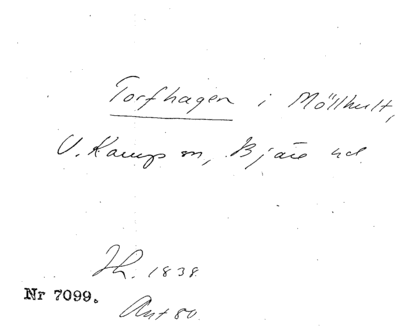 Torfhagen i Möllhult,
V. Karup sn, Bjäre hd.
Jh. 1838
Nr 7099.
Ant 80